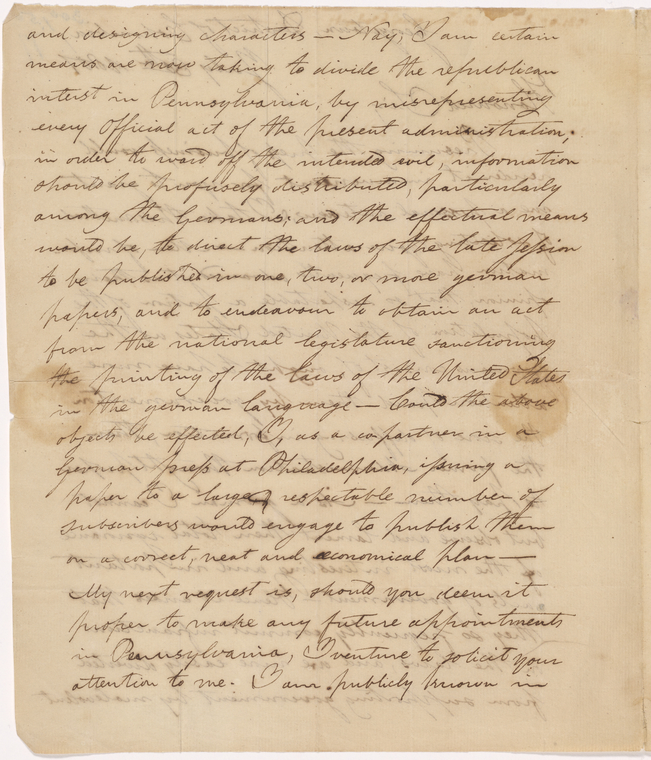 and designing characters — Nay, I am certain
means are now taking to divide the republican
interst in Pennsylvania, by misrepresenting
every Official act of the present administration;
in order to ward off the intended evil, information
should be profusely distributed, particularly
among the Germans; and the effectual means
would be, to direct the laws of the late Session
to be published in one, two, or more german
papers, and to endeavour to obtain an act
from the national legislature sanctioning
the printing of the laws of the United States
in the german language — Could the above
objects be effected, I, as a copartner in a
German press at Philadelphia, issuing a
paper to a large & respectable number of
subscribers would engage to publish them
on a correct, neat and economical plan —
My next request is, should you deem it
proper to make any future appointments
in Pennsylvania, I venture to solicit your
attention to me. I am publicly known in